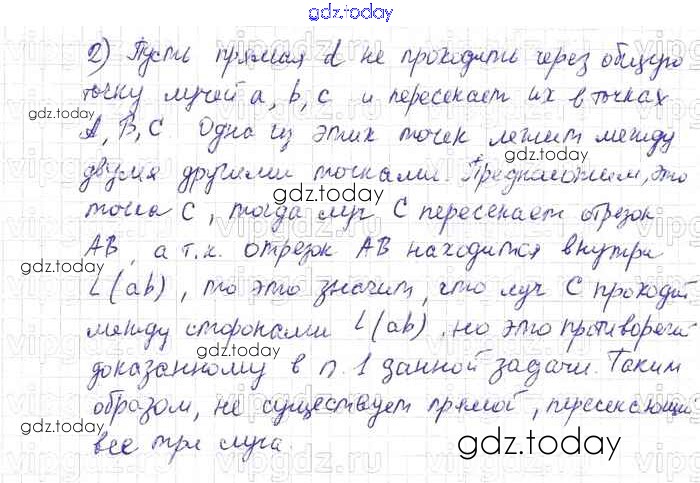 gdz.today
2) Пусть прямая d не проходить через общую
точку лучей a, b, c и пересекает их в точках
gdz.today
A, B, C Одна из этих точек лежит между
gdz.today
двумя другими точками. Предположим, это
gdz.today
точка C, тогда луч C пересекает отрезок
AB, а т.к. отрезок AB находится внутри
gdz.today
L(ab), то это значит, что луч C проходит
между сторонами L(ab), но это противоречи
gdz.today
доказанному в п. 1 данной задачи. Таким
образом, не существует прямой, пересекающи
gdz.today
все три луча.
gdz.today